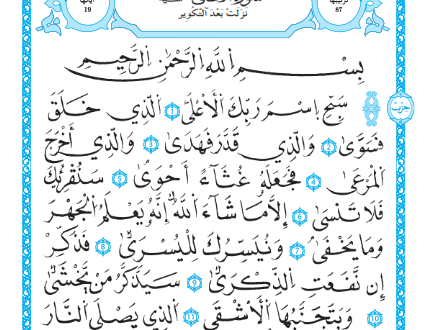 نزلت بعد التكوير
ترتيبها
87
آياتها
19
بِسْمِ اللَّهِ الرَّحْمَٰنِ الرَّحِيمِ
سَبِّحِ اسْمَ رَبِّكَ الْأَعْلَى ١ الَّذِي خَلَقَ
فَسَوَّىٰ ٢ وَالَّذِي قَدَّرَ فَهَدَىٰ ٣ وَالَّذِي أَخْرَجَ
الْمَرْعَىٰ ٤ فَجَعَلَهُ غُثَاءً أَحْوَىٰ ٥ سَنُقْرِئُكَ
فَلَا تَنسَىٰ ٦ إِلَّا مَا شَاءَ اللَّهُ إِنَّهُ يَعْلَمُ الْجَهْرَ
وَمَا يَخْفَىٰ ٧ وَنُيَسِّرُكَ لِلْيُسْرَىٰ ٨ فَذَكِّرْ
إِن نَّفَعَتِ الذِّكْرَىٰ ٩ سَيَذَّكَّرُ مَن يَخْشَىٰ
١٠ وَيَتَجَنَّبُهَا الْأَشْقَى ١١ الَّذِي يَصْلَى النَّارَ
حزب